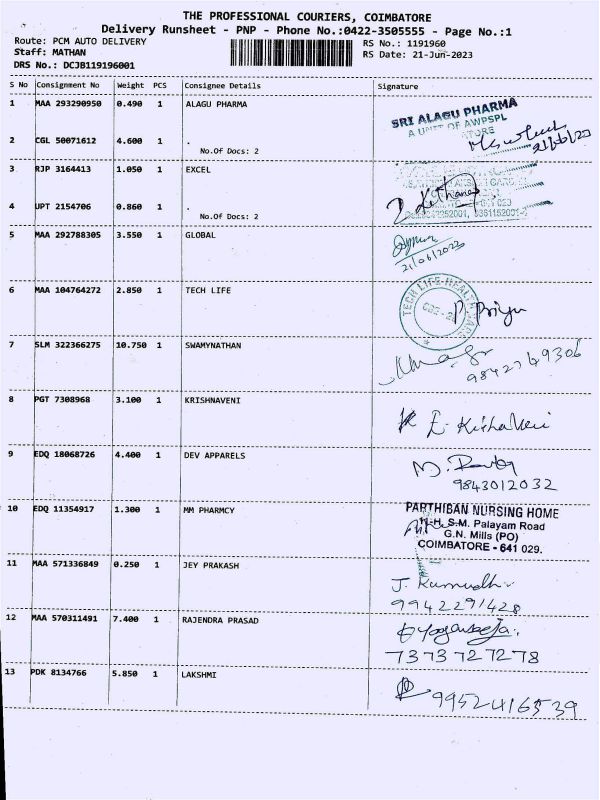 THE PROFESSIONAL COURIERS, COIMBATORE
Delivery Runsheet - PNP - Phone No.:0422-3505555 - Page No.:1
Route: PCM AUTO DELIVERY RS No.: 1191960
Staff: MATHAN RS Date: 21-Jun-2023
DRS No.: DCJB119196001
S No Consignment No Weight PCS Consignee Details Signature
1 MAA 293290950 0.490 1 ALAGU PHARMA
SRI ALAGU PHARMA
A UNIT OF AWPSPL
STORE
2 CGL 50071612 4.600 1 .
No.Of Docs: 2
3 RJP 3164413 1.050 1 EXCEL
4 UPT 2154706 0.860 1 .
No.Of Docs: 2
5 MAA 292788305 3.550 1 GLOBAL
21/06/2023
6 MAA 104764272 2.850 1 TECH LIFE
P. Priya
7 SLM 322366275 10.750 1 SWAMYNATHAN
9842749306
8 PGT 7308968 3.100 1 KRISHNAVENI
9 EDQ 18068726 4.400 1 DEV APPARELS
9843012032
10 EDQ 11354917 1.300 1 MM PHARMCY
PARTHIBAN NURSING HOME
S.M. Palayam Road
G.N. Mills (PO)
COIMBATORE - 641 029.
11 MAA 571336849 0.250 1 JEY PRAKASH
9942291428
12 MAA 570311491 7.400 1 RAJENDRA PRASAD
7373727278
13 PDK 8134766 5.850 1 LAKSHMI